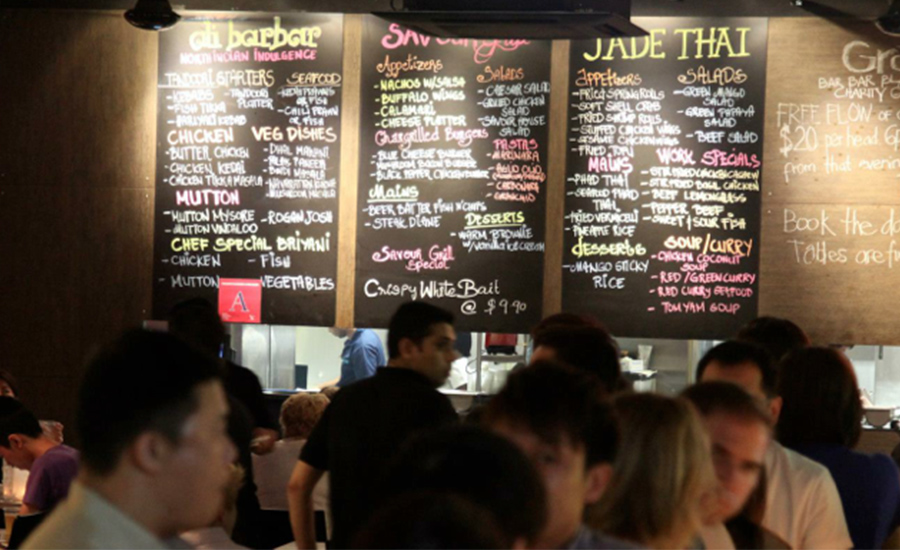 di barbar
NORTH INDIAN INDULGENCE
TANDOORI STARTERS
- KEBABS
- FISH TIKKA
- TANDOORI
PLATTER
SEAFOOD
OR FISH
- CHILI PRAWN
OR FISH
CHICKEN
- BUTTER CHICKEN
- CHICKEN KEBAB
- CHICKEN TIKKA MASALA
VEG DISHES
- DHAL MAKANI
MUTTON
- MUTTON MYSORE
- MUTTON VINDALOO
- ROGAN JOSH
CHEF SPECIAL BRIYANI
- CHICKEN
- FISH
- MUTTON
- VEGETABLES
A
Appetizers
- NACHOS W/SALSA
- BUFFALO WINGS
- CALAMARI
- CHEESE PLATTER
SALADS
- CAESAR SALAD
- GRILLED CHICKEN
SALAD
- SAVOUR HOUSE
SALAD
Chargrilled Burgers
- BLUE CHEESE BURGER
- BLACK PEPPER CHICKEN BURGER
PASTAS
- MARINARA
- AGLIO OLIO
- CARBONARA
Mains
- BEER BATTER FISH N' CHIPS
- STEAK DIANE
DESSERTS
- WARM BROWNIE
W/ VANILLA ICE CREAM
Savour Grill
Special
Crispy White Bait
@ $9.90
JADE THAI
Appetizers
- FRIED SPRING ROLLS
- SOFT SHELL CRAB
- FRIED SHRIMP ROLLS
- STUFFED CHICKEN WINGS
- SESAME CHICKEN WINGS
- FRIED TOFU
SALADS
- GREEN MANGO
SALAD
- GREEN PAPAYA
SALAD
- BEEF SALAD
MAINS
- PHAD THAI
- SEAFOOD PHAD
THAI
- FRIED VERMICELLI
- PINEAPPLE RICE
WORK SPECIALS
- STIR FRIED BASIL CHICKEN
- BEEF LEMONGRASS
- PEPPER BEEF
- SWEET & SOUR FISH
desserts
- MANGO STICKY
RICE
SOUP/CURRY
- CHICKEN COCONUT
SOUP
- RED/GREEN CURRY
- RED CURRY SEAFOOD
- TOM YAM SOUP
BAR BAR BL
CHARITY G
FREE FLOW OF
$20 per head 6p
from that evenin
Book the da
Tables are fr